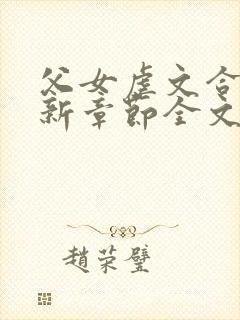 父女虐文合
新章节全文
趙荣璧